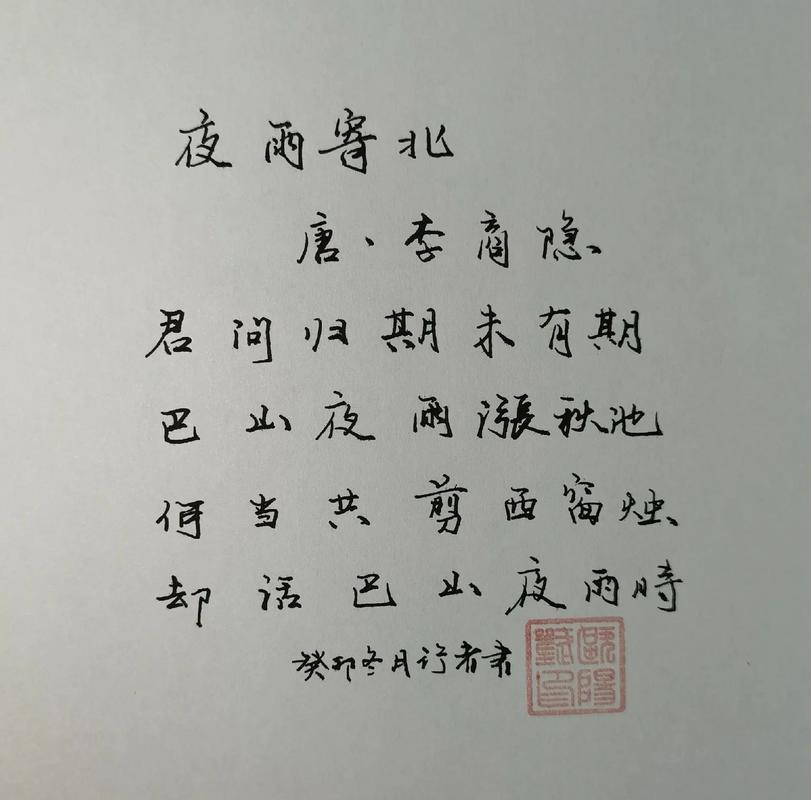 夜雨寄北
唐、李商隐
君问归期未有期
巴山夜雨漲秋池
何当共剪西窗烛
却话巴山夜雨時
癸卯冬月行者書
歐陽
印